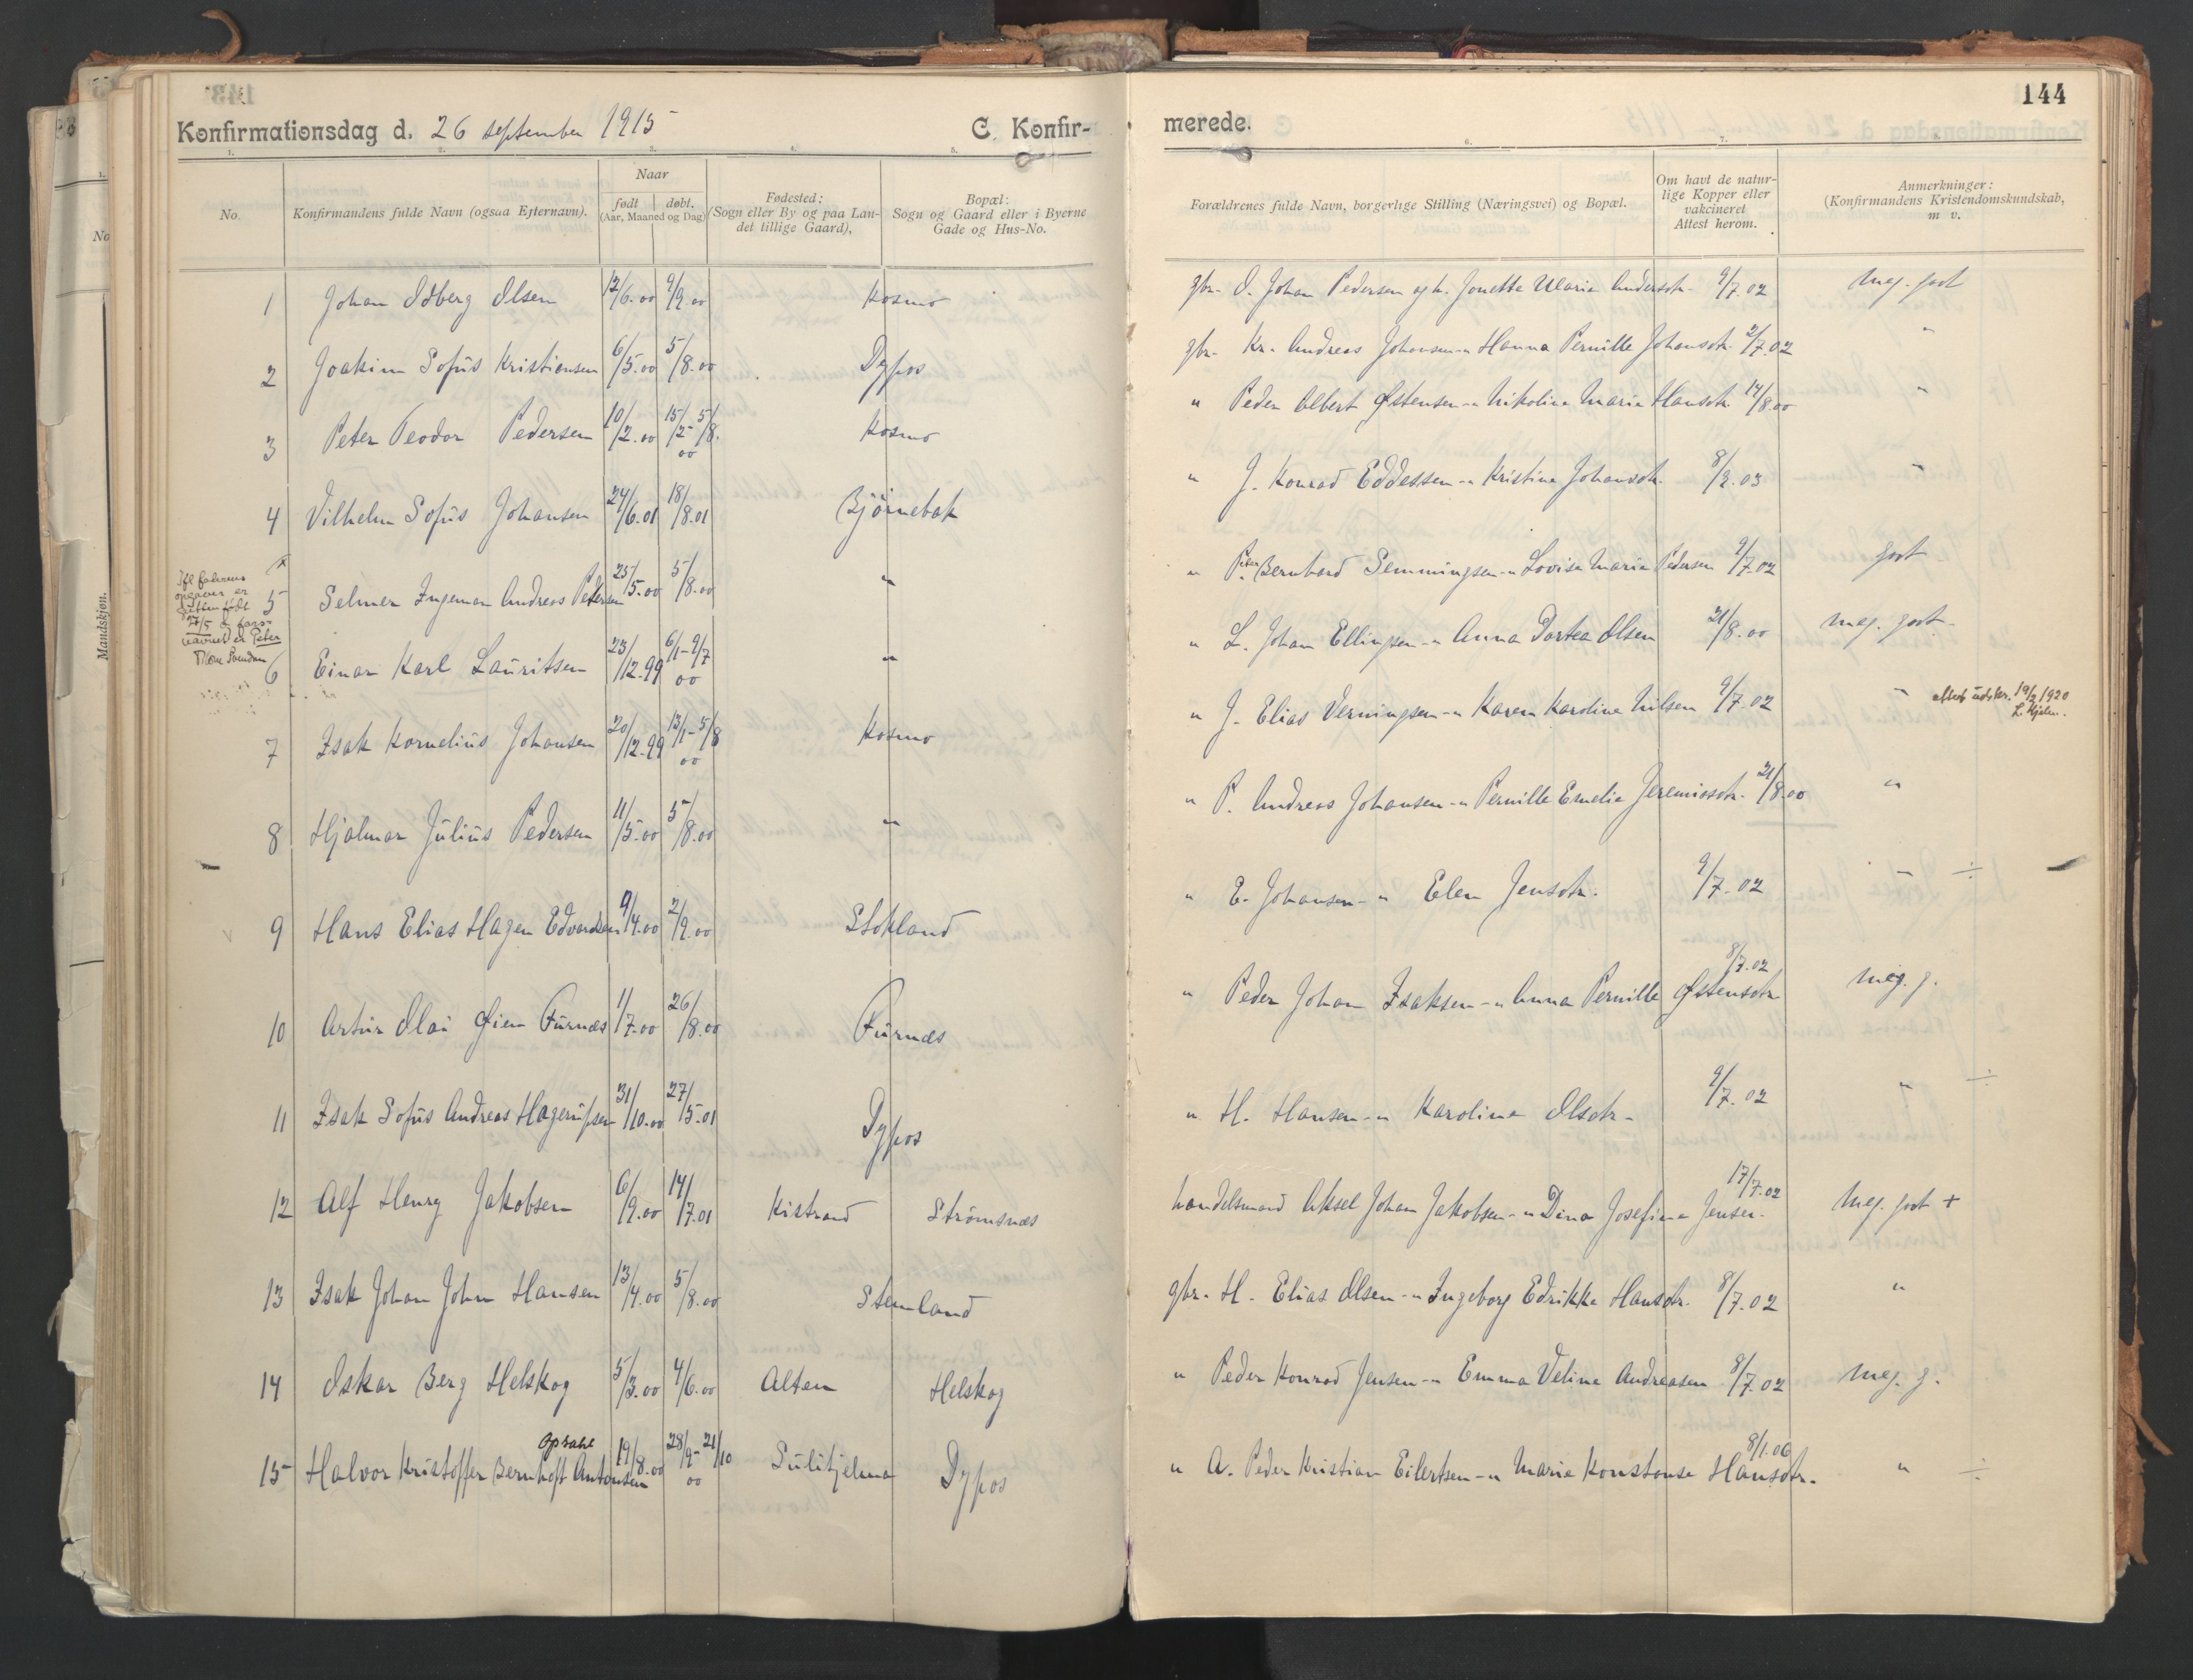 144
Konfirmationsdag d. 26 september 1915 C. Konfir-
merede.
1. 2. 3. 4. 5. 6. 7.
No.
Konfirmandens fulde Navn (ogsaa Efternavn).
Naar
født døbt.
(Aar, Maaned og Dag)
Fødested:
(Sogn eller By og paa Lan-
det tillige Gaard),
Bopæl:
Sogn og Gaard eller i Byerne
Gade og Hus-No.
Forældrenes fulde Navn, borgerlige Stilling (Næringsvei) og Bopæl.
Om havt de natur-
lige Kopper eller
vakcineret
Attest herom.
Anmerkninger:
(Konfirmandens Kristendomskundskab,
m v.
1 Johan Odberg Olsen 12/6.00 9/9.00 Kosmo gbr. O. Johan Pedersen og h. Jonette Maria Andersdtr. 9/7.02 meg. godt
2 Joakim Sofus Kristiansen 6/5.00 5/8.00 Dypos gbr. Kr. Andreas Johansen - " Hanna Pernille Johansdtr. 2/7.02 "
3 Peter Teodor Pedersen 10/2.00 15/2 - 5/8. 00 Kosmo " Peder Albert Østensen - " Nikoline Marie Hansdtr. 14/8.00 "
4 Vilhelm Sofus Johansen 24/6.01 18/8.01 Björnebak " J. Konrad Eddessen - " Kristine Johansdtr. 8/9.03 "
5 Selmer Ingeman Andreas Pedersen 25/5.00 5/8.00 " " Peter Bernhard Semmingsen - " Lovise Marie Pedersen 9/7.02 godt
27/5
Peter
6 Einar Karl Lauritsen 23/12.99 6/1 - 9/7 00 " " L. Johan Ellingsen - " Anna Dortea Olsen 21/8.00 meg. godt
7 Isak Kornelius Johansen 20/12.99 13/1 - 5/8 00 Kosmo " J. Elias Verningsen - " Karen Karoline Nilsen 9/7.02 " attest udskr. 19/2 1920
8 Hjalmar Julius Pedersen 11/5.00 5/8.00 " " P. Andreas Johansen - " Pernille Emelie Jeremiasdtr. 21/8.00 "
9 Hans Elias Hagen Edvardsen 9/4.00 2/9.00 Stokland " E. Johansen - " Elen Jensdtr. 9/7.02 " ÷
10 Artur Olai Øien Furnæs 1/7.00 26/8.00 Furnæs " Peder Johan Isaksen - " Anna Pernille Østensdtr 8/7.02 meg. g.
11 Isak Sofus Andreas Hagerupsen 31/10.00 27/5.01 Dypos " H. Hansen - " Karoline Olsdtr. 9/7.02 " ÷
12 Alf Henry Jakobsen 6/9.00 14/7.01 Kistrand Strömsnæs handelsmand Aksel Johan Jakobsen - " Dina Josefine Jensen. 17/7.02 Meg. godt +
13 Isak Johan John Hansen 13/4.00 5/8.00 Stemland gbr. H. Elias Olsen - " Ingeborg Edrikke Hansdtr. 8/7.02 "
14 Oskar Berg Helskog 5/3.00 4/6.00 Alten Helskog " Peder Konrad Jensen - " Emma Veline Andreasen 8/7.02 meg. g.
15 Halvor Kristoffer Bernhoft Antonsen Opsahl 19/8.00 28/9 - 21/10 00 Sulitjelma Dypos " A. Peder Kristian Eilertsen - " Marie Konstanse Hansdtr. 8/1.06 " ÷
Mandskjøn.